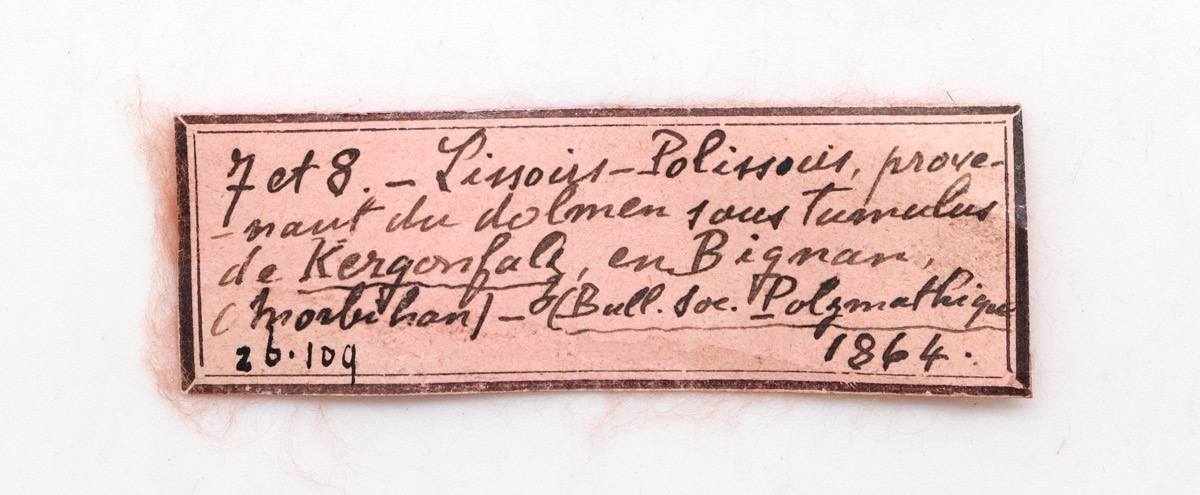 7 et 8. - Lissoirs-Polissoirs, prove-
-nant du dolmen sous tumulus
de Kergonfalz, en Bignan,
(Morbihan) - (Bull. Soc. Polymathique
26.109 1864.